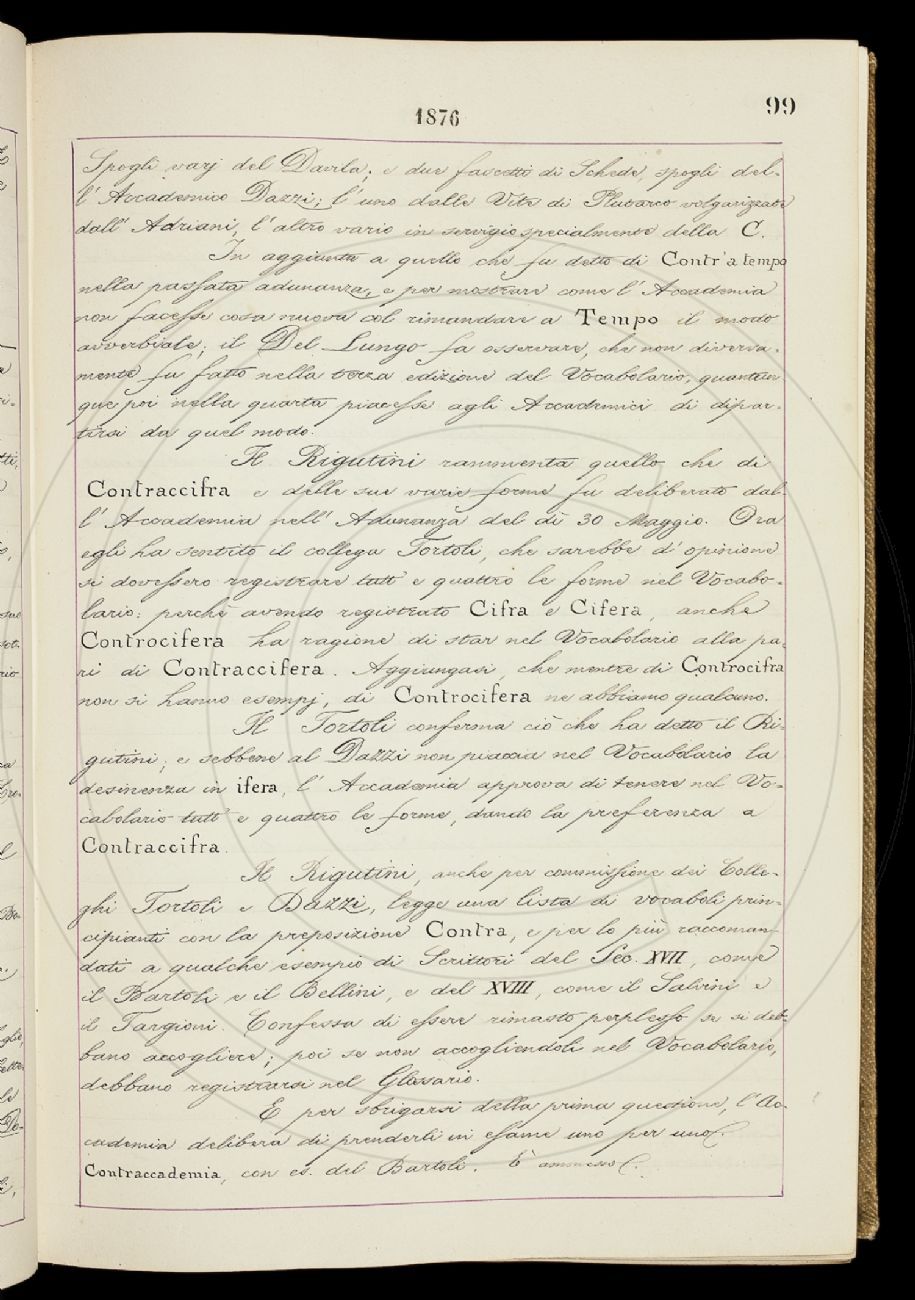 1876
99
Spogli varj del Davila; e due fascetti di Schede, spogli del-
l'Accademico Dazzi; l'uno dalle Vite di Plutarco volgarizzate
dall'Adriani, l'altro vario in servigio specialmente della C.
In aggiunta a quello che fu detto di Contr'a tempo
nella passata adunanza, e per mostrare come l'Accademia
non facesse cosa nuova col rimandare a Tempo il modo
avverbiale; il Del Lungo fa osservare, che non diversa-
mente fu fatto nella terza edizione del Vocabolario, quantun
que poi nella quarta piacesse agli Accademici di dipar-
tirsi da quel modo.
Il Rigutini rammenta quello che di
Contraccifra e delle sue varie forme fu deliberato dal-
l'Accademia nell'Adunanza del dì 30 Maggio. Ora
egli ha sentito il collega Tortoli, che sarebbe d'opinione
si dovessero registrare tutt'e quattro le forme nel Vocabo-
lario: perchè avendo registrato Cifra e Cifera, anche
Controcifera ha ragione di star nel Vocabolario alla pa-
ri di Contraccifera. Aggiungasi, che mentre di Controcifra
non si hanno esempj, di Controcifera ne abbiamo qualcuno.
Il Tortoli conferma ciò che ha detto il Ri-
gutini; e sebbene al Dazzi non piaccia nel Vocabolario la
desinenza in ifera, l'Accademia approva di tenere nel Vo-
cabolario tutt'e quattro le forme, dando la preferenza a
Contraccifra.
Il Rigutini, anche per commissione dei Colle-
ghi Tortoli e Dazzi, legge una lista di vocaboli prin-
cipianti con la preposizione Contra, e per lo più raccoman-
dati a qualche esempio di Scrittori del Sec. XVII, come
il Bartoli e il Bellini, e del XVIII, come il Salvini e
il Targioni. Confessa di essere rimasto perplesso se si deb-
bano accogliere; poi se non accogliendoli nel Vocabolario,
debbano registrarsi nel Glossario.
E per sbrigarsi della prima questione, l'Ac-
cademia delibera di prenderli in esame uno per uno.
Contraccademia, con es. del Bartoli. È ammesso.